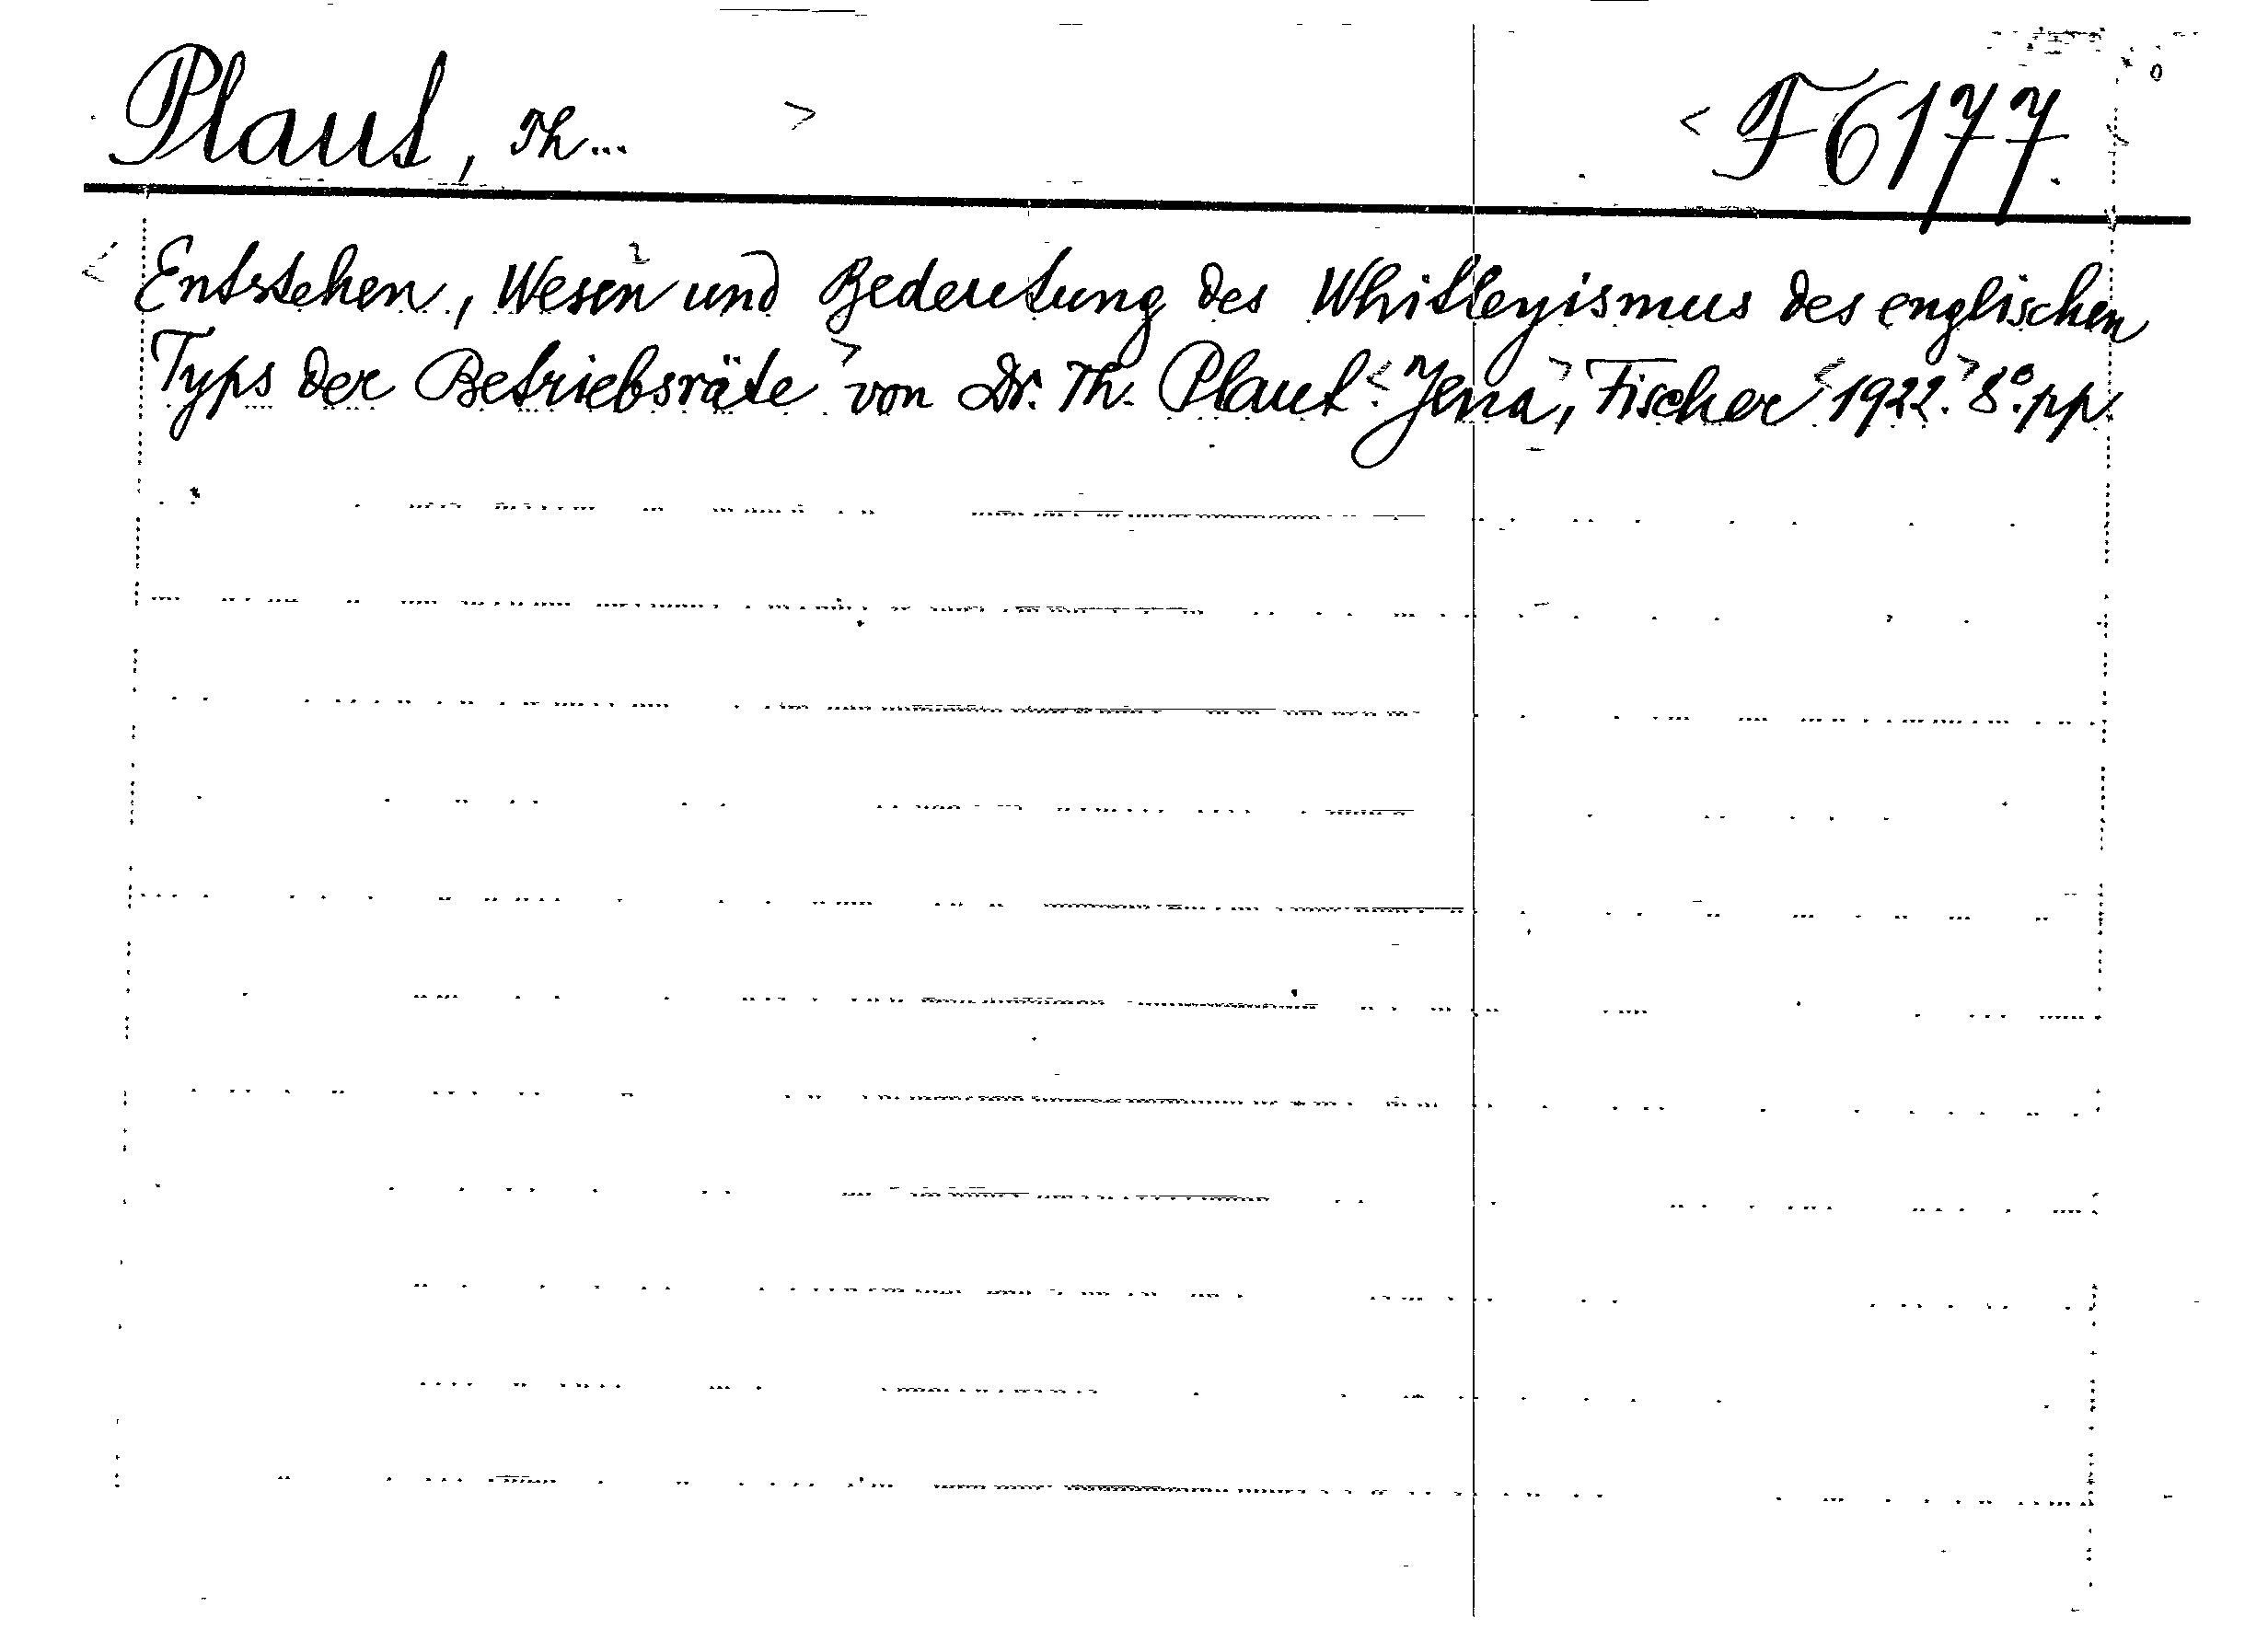 Plaut, Th... F6177.
Entstehen, Wesen und Bedeutung des Whitleyismus des englischen
Typs der Betriebsräte von Dr. Th. Plaut. Jena, Fischer 1922. 8°. pp.